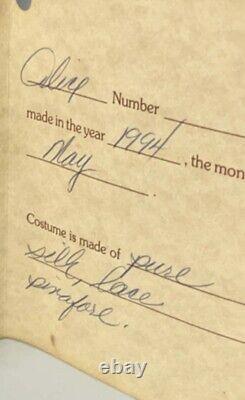 Alice Number
made in the year 1994, the mon
May .
Costume is made of pure
silk, lace
pinafore.
ebay